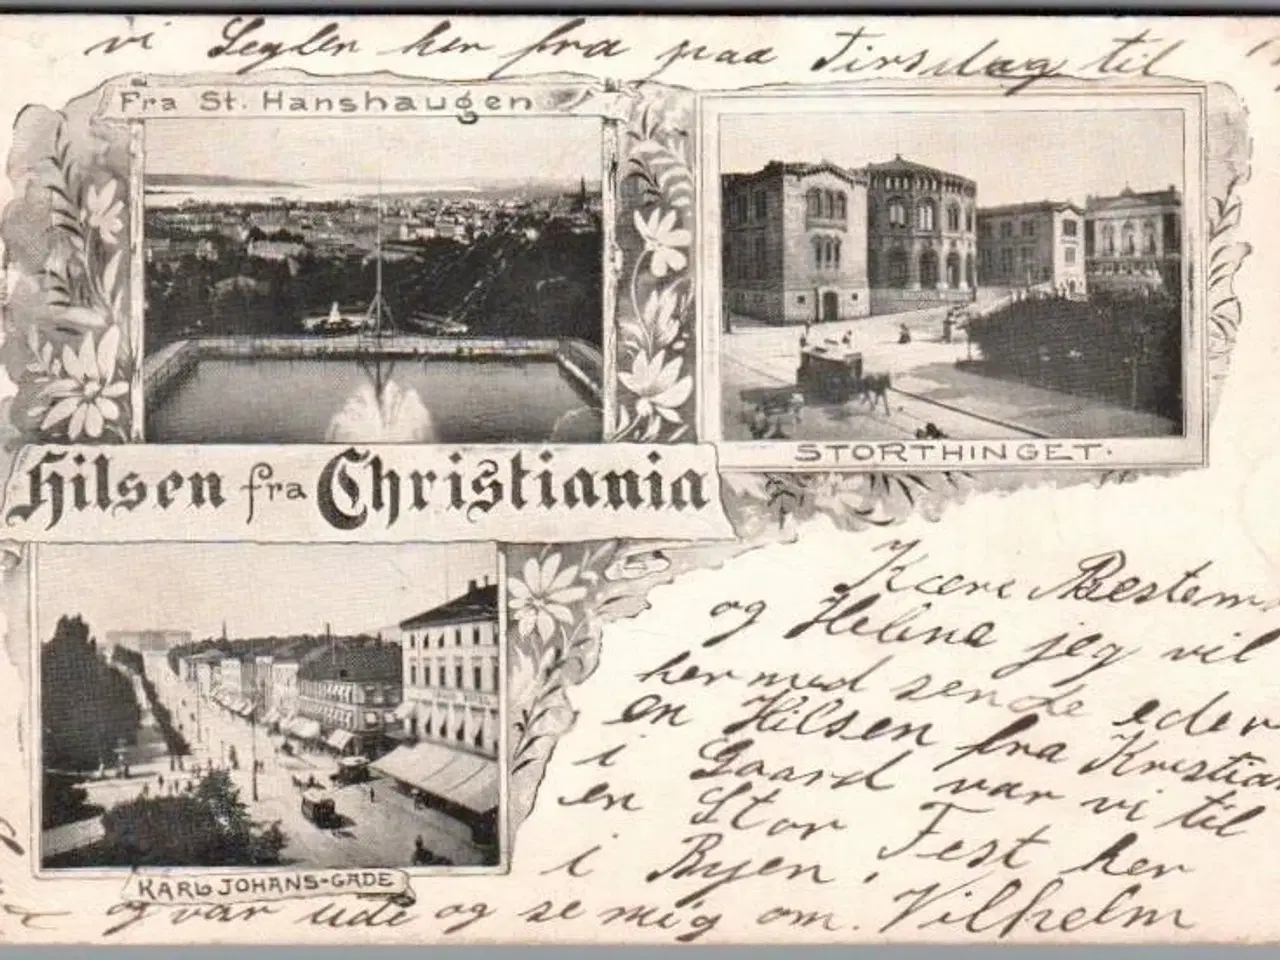 vi Seyler her fra paa Tirsdag til
Fra St. Hanshaugen
STORTHINGET.
Hilsen fra Christiania
Kære Bestem
og Helena jeg vil
hermed sende eder
en Hilsen fra Kristia
i Gaard var vi til
en Stor Fest her
i Byen. Vilhelm
KARL JOHANS-GADE
og var ude og se mig om.